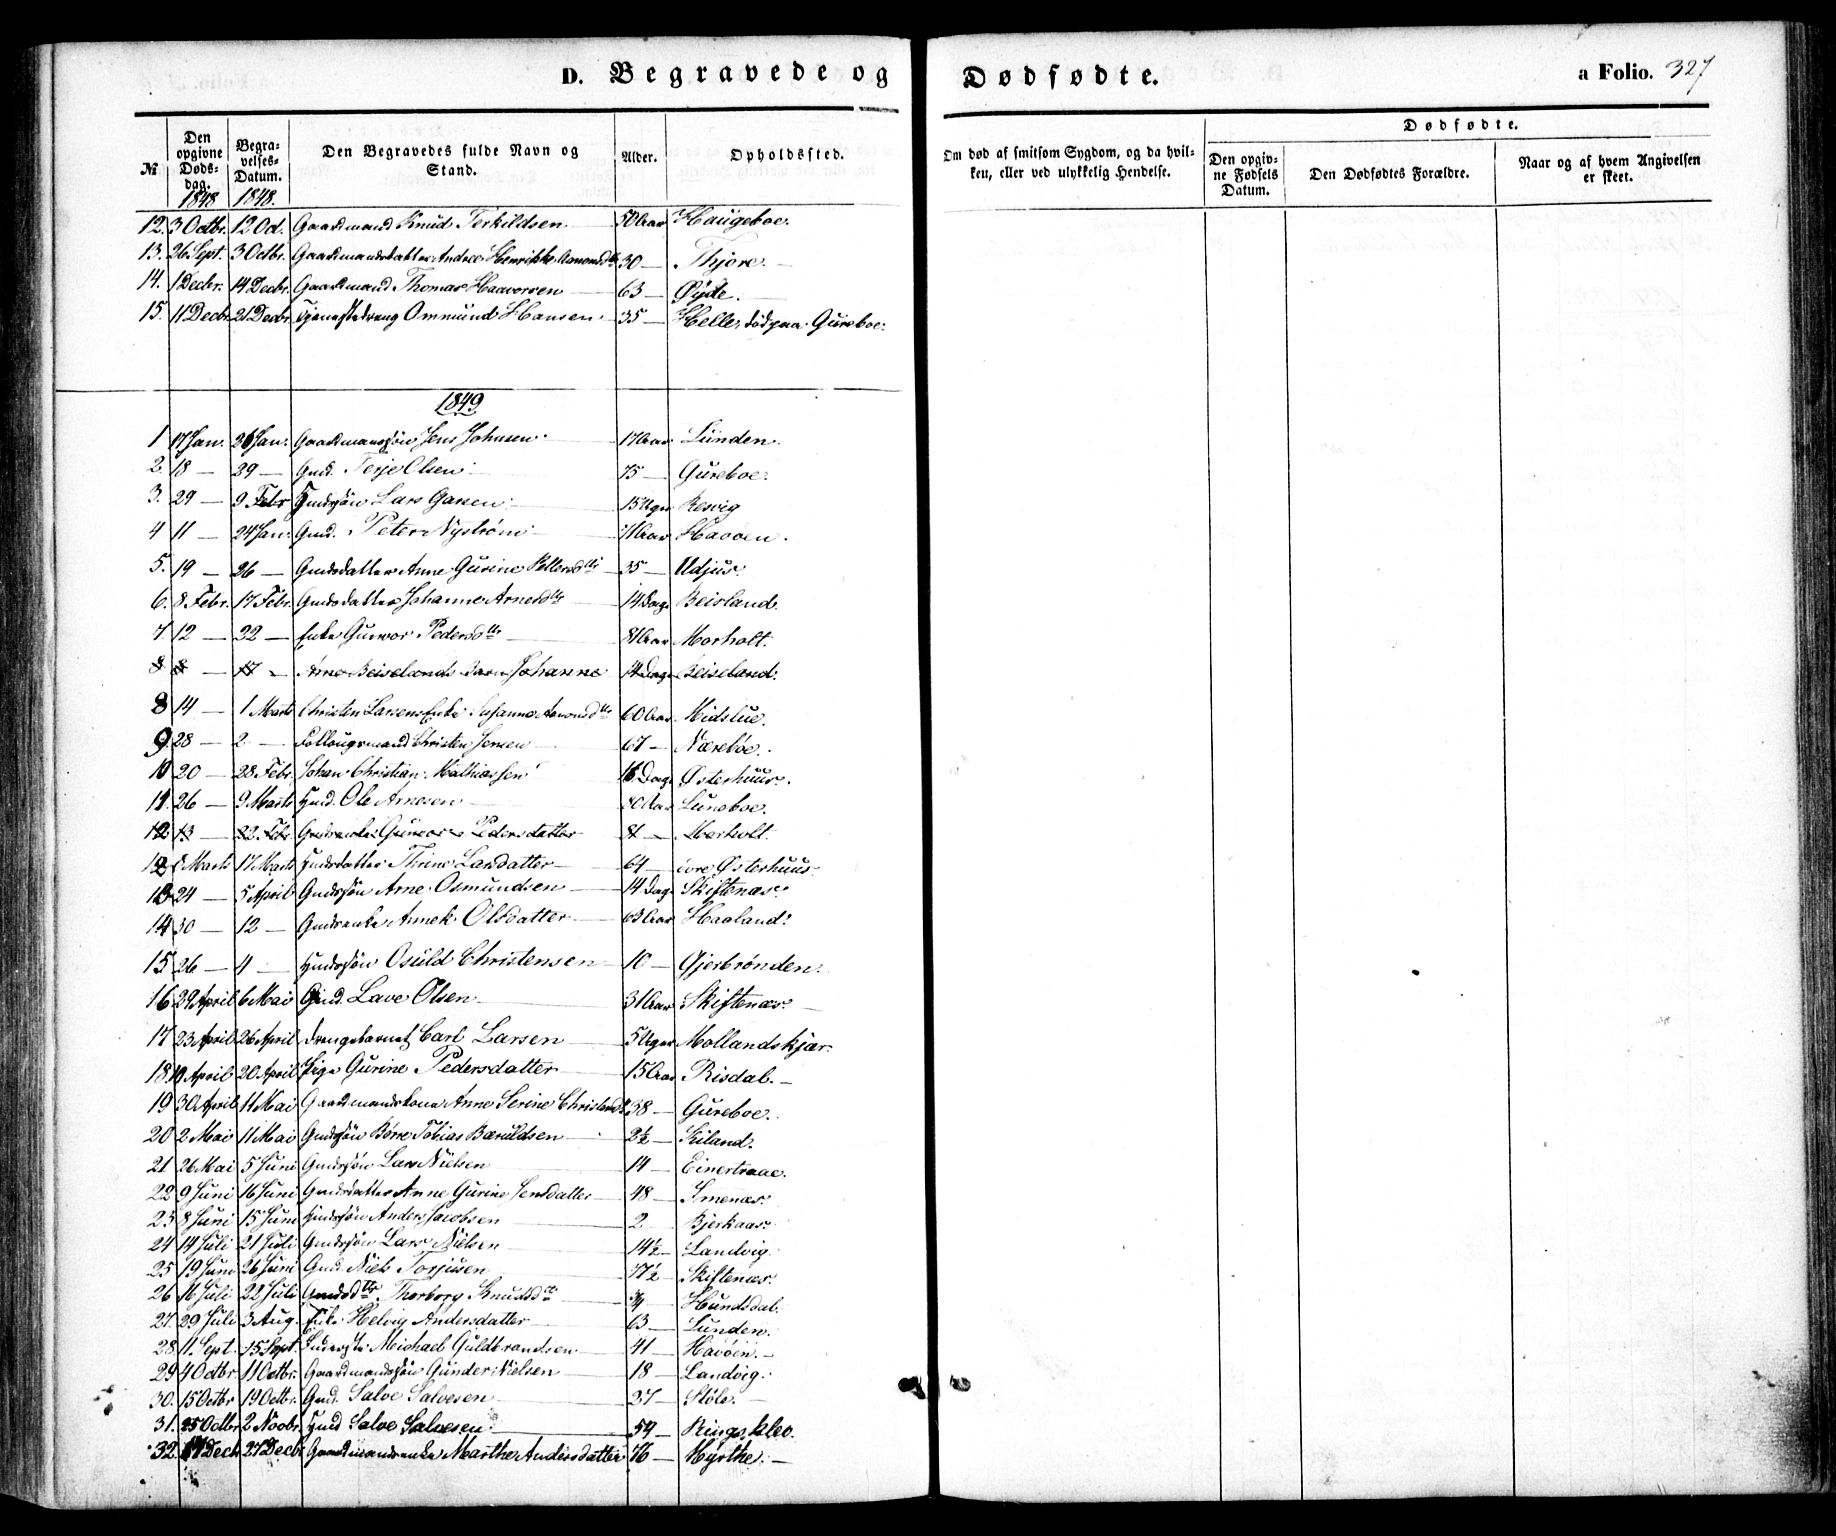 D. Begravede og Dødfødte. a Folio. 327
№ Den opgivne Døds-dag. 1848 Begra-velses-Datum. 1848. Den Begravedes fulde Navn og Stand. Alder. Opholdssted. Om død af smitsom Sygdom, og da hvil-ken, eller ved ulykkelig Hendelse. Dødfødte. Den opgiv-ne Fødsels Datum. Den Dødfødtes Forældre. Naar og af hvem Angivelsen er skeet.
12. 3 Octbr. 12 Oct. Gaardmand Knud Terkildsen 50 Aar Haugeboe.
13. 26 Sept. 3 Octbr. Gaardmandsdatter Andrea Henrikke Amonsdtr 30 — Thjore. —
14. 1 Decbr. 14 Decbr. Gaardmand Thomas Haavorsen 63 — Øyde.
15. 11 Decbr 21 Decbr Tjenestedreng Ommund Hansen. 35 — Helle, død paa Gureboe.
1849
1 17 Jan. 26 Jan. Gaardmandssøn Jens Johnsen. 17 Aar Lunden.
2. 18 — 29 — Gmd. Terje Olsen 75 — Gureboe.
3. 29 — 9 Febr Hmdssøn Lars Garsen 15 Uger Resvig
4 11 — 24 Jan. Gmd. Peter Nystrøm 71 Aar Havöen.
5. 19 — 26 — Gmdsdatter Anne Gurine Pettersdtr 35 — Udjus.
6. 8 Febr. 17 Febr. Gmdsdatter Johanne Arnesdtr 14 Dage Beisland.
7 12 — 22 — Enke Gunvor Pedersdtr 81 Aar Morholt.
8 8 — 17 — Arne Beiselands Barn Johanne 14 Dage Beiseland.
8 14 — 1 Marts Christen Larsens Enke Susanne Aanonsdtr 60 Aar. Midslue.
9 28 — 2 — Føllougsmand Christen Jensen 67 — Nærebøe.
10 20 — 28 Febr. Johan Christian Mathiassen 16 Dage Østerhuus.
11. 26 — 9 Marts Hmd. Ole Arnesen 80 Aar Luneboe.
12 13 — 22. Febr. Gmdsenke Gunvor Pedersdatter 81 — Morholt.
12 8 Marts 17 Marts Hmdsdatter Thrine Larsdatter 64 — övre Østerhuus
13 24 — 5 April Gmdssøn Arne Osmundsen 14 Dag Skiftenæs.
14 30 — 12 — Gmdsenke Annek. Olsdatter 63 Aar Haaland.
15 26 — 4 — Hmdssøn Osuld Christensen 10 — Gjerbrönden.
16 29 April 6 Mai Gmd. Lave Olsen 31 Aar Skiftenæs.
17 23 April 26 April Drengebarnet Carl Larsen 5 Uger Mollandskjær
18. 10 April 20 April Pige Gurine Pedersdatter 15 Aar Risdal. —
19 30 April 11 Mai Gaardmandskone Anne Serine Christensdtr 38 — Gureboe.
20 2 Mai 11 Mai Gmdssøn Børre Tobias Bæruldsen 2½ — Kiland.
21 26 Mai 5 Juni Gmdssøn Lars Nielsen 14 — Einertraae.
22 9 Juni 16 Juni Gmdsdatter Anne Gurine Jensdatter 48 — Imenæs.
23 8 Juni 15 Juni Hmdssøn Anders Jacobsen 2 Bjerkaas.
24 14 Juli 21 Juli Gmdssøn Lars Nielsen 14½ — Landvig.
25 19 Juni 26 Juni Gmd. Niels Torjussen 77½ Skiftenæs.
26 16 Juli 22 Juli Gmdsdtr. Thorborg Knudsdtr ¾ — Hundsdal.
27. 29 Juli 3 Aug. Enke Helvig Andersdatter 63 — Lunden.
28 11. Sept. 15 Sept. Inderste Michael Guldbrandsen 41 — Havöen. —
29 4 Octbr. 11 Octbr. Gaardmandssøn Gunder Nielsen 18 — Landvig.
30. 15 Octbr 19 Octbr. Gmd. Salve Salvesen 37 — Støle. —
31. 25 Octbr 2 Novbr. Hmd Salve Salvesen 54 — Ringsklev.
32. 17 Decbr 27 Decbr Gaardmandsenke Marthe Andersdatter 76 — Hyrthe. —